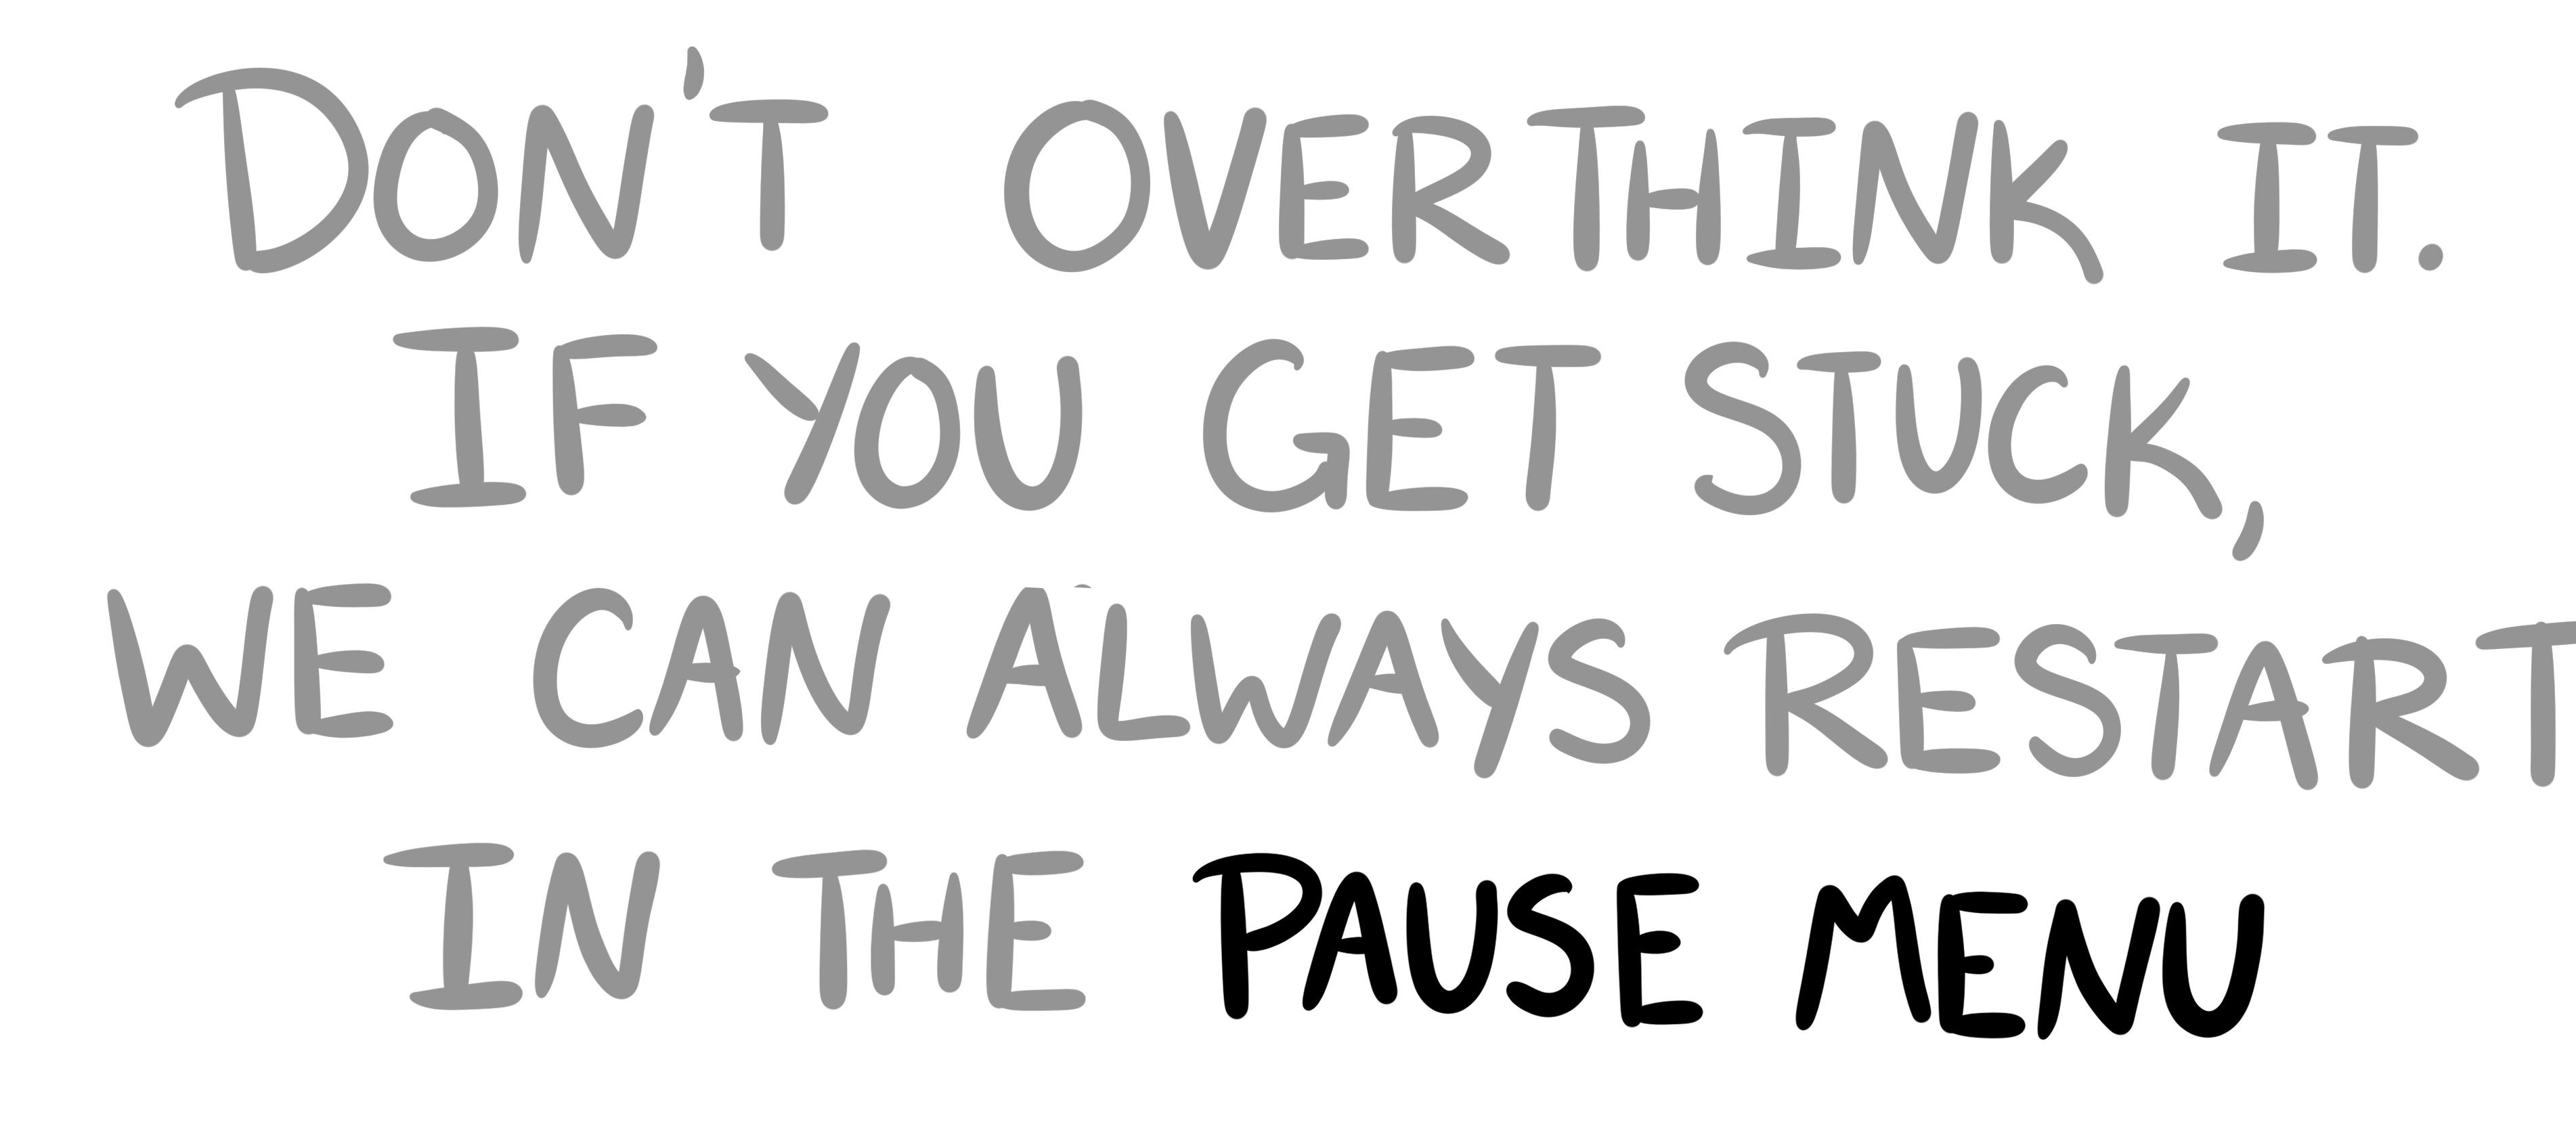 DON'T OVERTHINK IT.
IF YOU GET STUCK,
WE CAN ALWAYS RESTART
IN THE PAUSE MENU